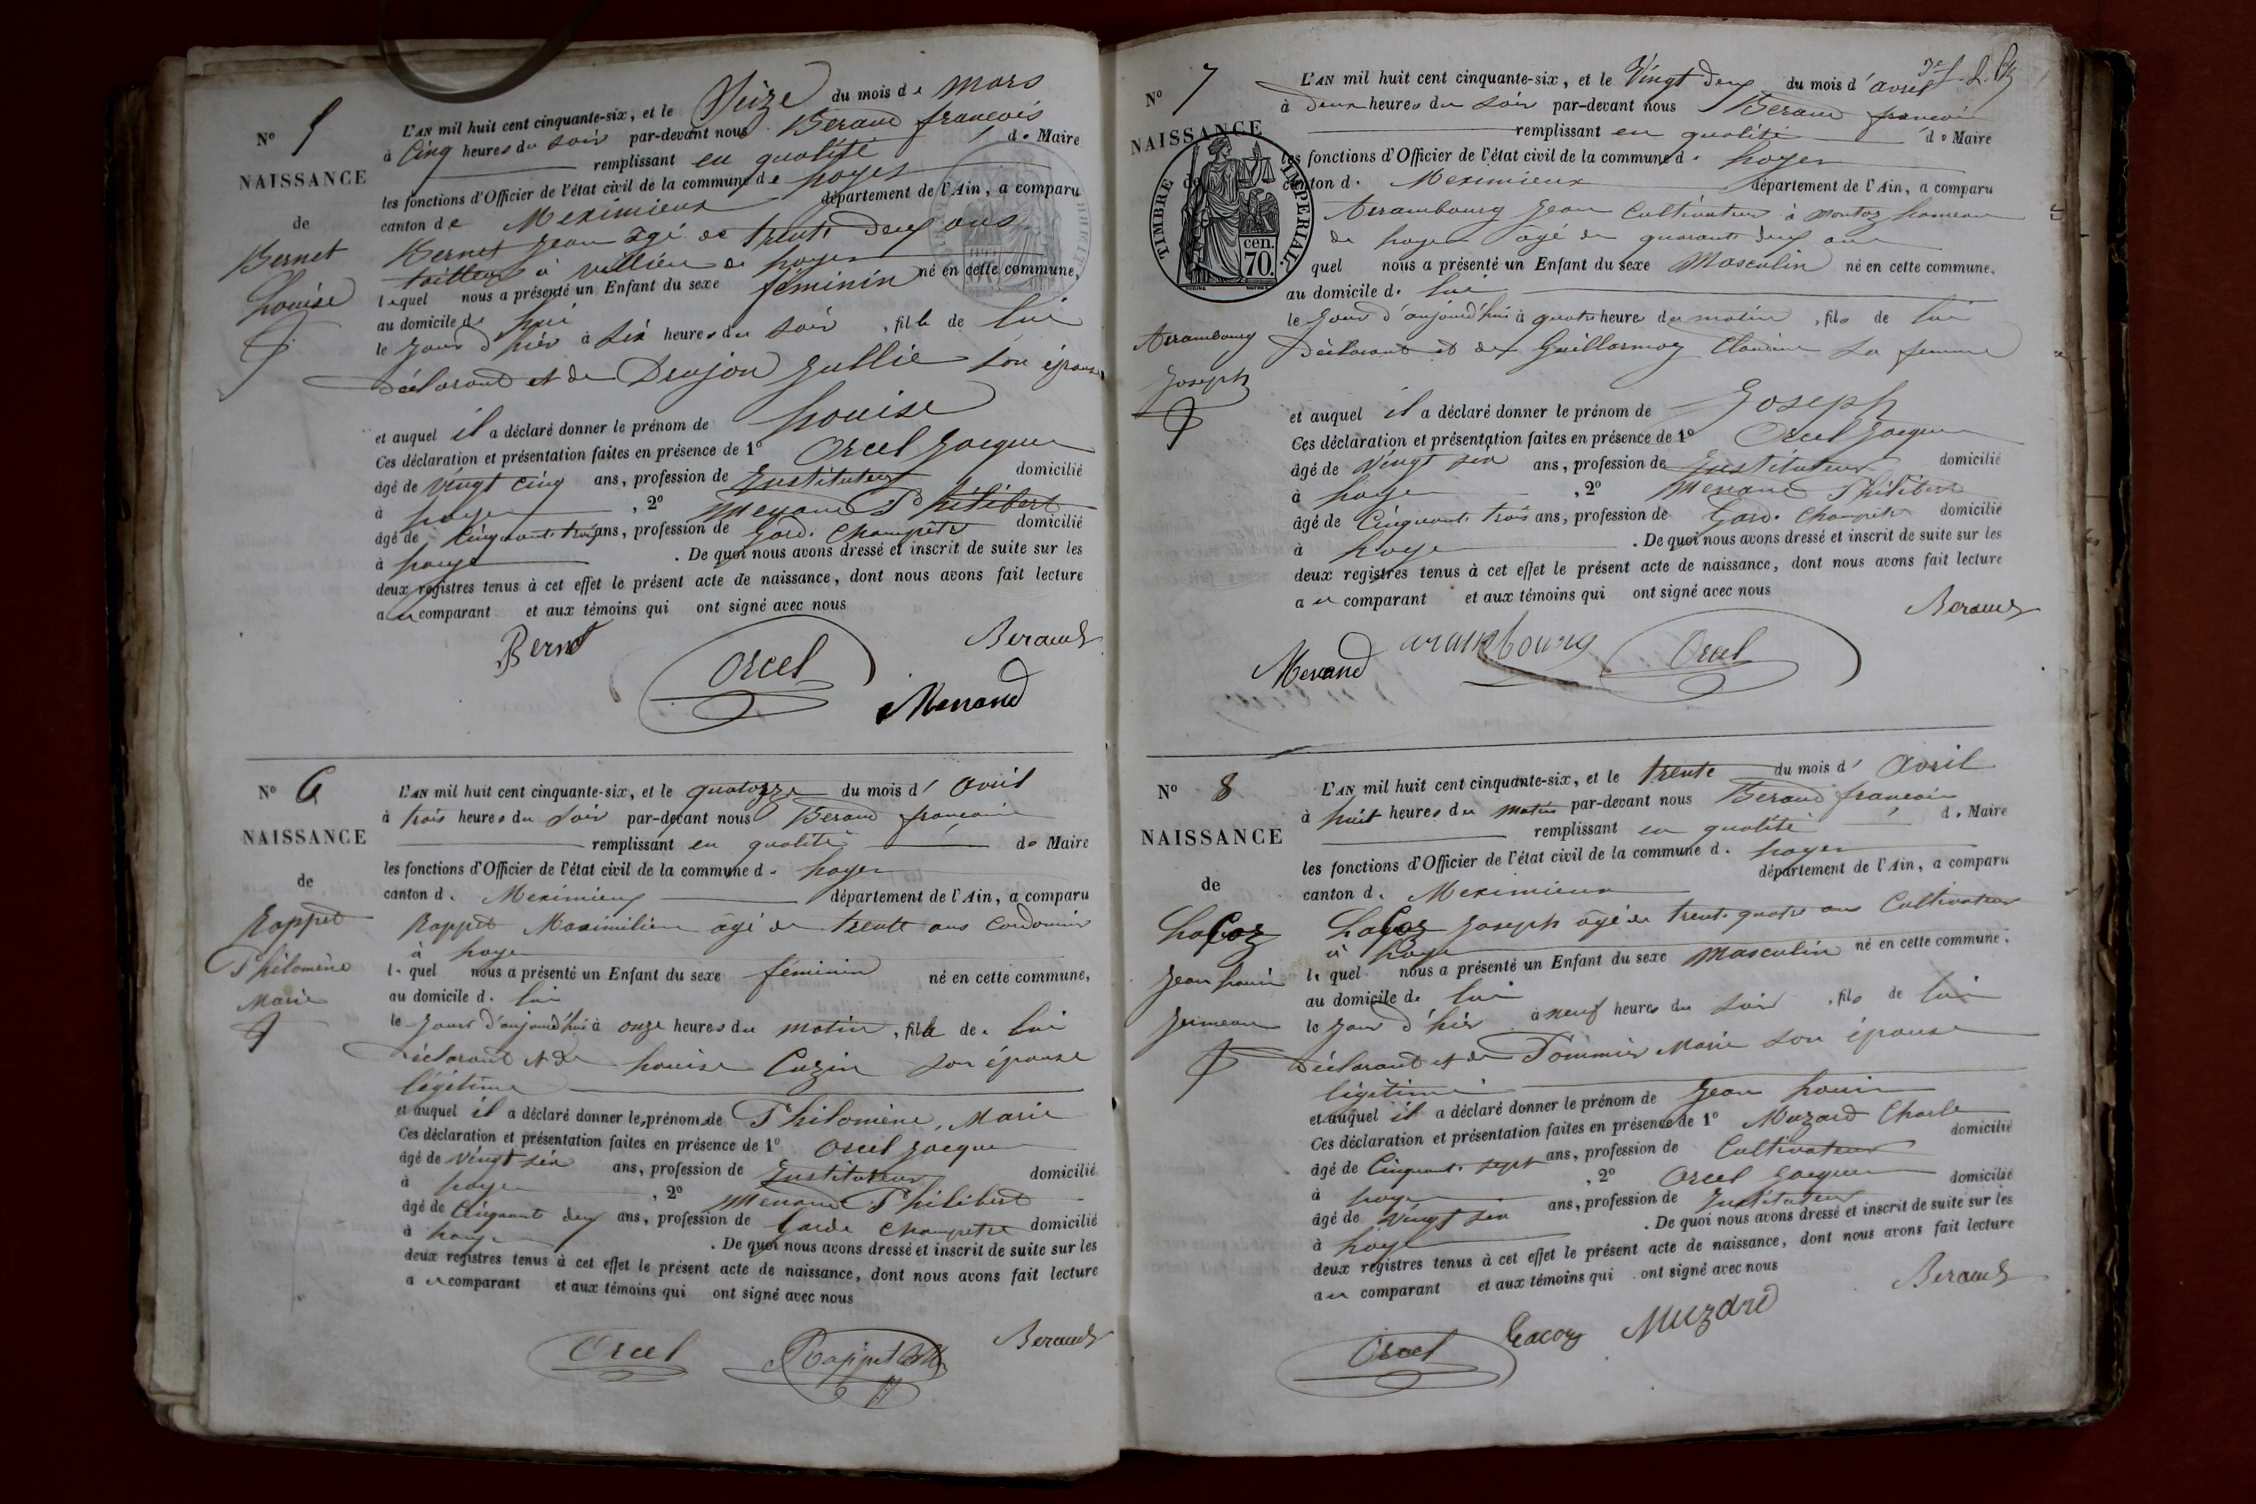 N° 5
NAISSANCE
de
Bernet
Louise
L'AN mil huit cent cinquante-six, et le Seize du mois de Mars
à Cinq heures du soir par-devant nous Beraud françois
remplissant en qualité de Maire
les fonctions d'Officier de l'état civil de la commune de Loyes
canton de Meximieux département de l'Ain, a comparu
Bernet Jean âgé de trente deux ans
tailleur à villieu de Loyes
lequel nous a présenté un Enfant du sexe féminin né en cette commune,
au domicile de lui
le jour d'hier à six heures du soir, fille de lui
déclarant et de Drujon Jullie son épouse
et auquel il a déclaré donner le prénom de Louise
Ces déclaration et présentation faites en présence de 1° Orcel Jacques
âgé de vingt cinq ans, profession de Instituteur domicilié
à Loyes, 2° Menand Philibert
âgé de Cinquante trois ans, profession de Garde Champêtre domicilié
à Loyes. De quoi nous avons dressé et inscrit de suite sur les
deux registres tenus à cet effet le présent acte de naissance, dont nous avons fait lecture
au comparant et aux témoins qui ont signé avec nous
Bernet
Orcel
Beraud
Menand
N° 6
NAISSANCE
de
Rappet
Philomène
Marie
L'AN mil huit cent cinquante-six, et le quatorze du mois d'avril
à trois heures du soir par-devant nous Beraud françois
remplissant en qualité de Maire
les fonctions d'Officier de l'état civil de la commune de Loyes
canton de Meximieux département de l'Ain, a comparu
Rappet Maximilien âgé de trente ans Cordonnier
à Loyes
lequel nous a présenté un Enfant du sexe féminin né en cette commune,
au domicile de lui
le jour d'aujourd'hui à onze heures du matin, fille de lui
déclarant et de Louise Cuzin son épouse
légitime
et auquel il a déclaré donner les prénoms de Philomène, Marie
Ces déclaration et présentation faites en présence de 1° Orcel Jacques
âgé de vingt six ans, profession de Instituteur domicilié
à Loyes, 2° Menand Philibert
âgé de Cinquante deux ans, profession de Garde Champêtre domicilié
à Loyes. De quoi nous avons dressé et inscrit de suite sur les
deux registres tenus à cet effet le présent acte de naissance, dont nous avons fait lecture
au comparant et aux témoins qui ont signé avec nous
Orcel
Rappet
Beraud
N° 7
NAISSANCE
de
TIMBRE IMPERIAL
70 cen.
Arrambourg
Joseph
L'AN mil huit cent cinquante-six, et le Vingt deux du mois d'avril
à deux heures du soir par-devant nous Beraud françois
remplissant en qualité de Maire
les fonctions d'Officier de l'état civil de la commune de Loyes
canton de Meximieux département de l'Ain, a comparu
Arrambourg Jean Cultivateur à Montoz hameau
de Loyes âgé de quarante deux ans
quel nous a présenté un Enfant du sexe Masculin né en cette commune,
au domicile de lui
le jour d'aujourd'hui à quatre heures du matin, fils de lui
déclarant et de Guillarmoz Claudine sa femme
et auquel il a déclaré donner le prénom de Joseph
Ces déclaration et présentation faites en présence de 1° Orcel Jacques
âgé de Vingt six ans, profession de Instituteur domicilié
à Loyes, 2° Menand Philibert
âgé de Cinquante trois ans, profession de Garde Champêtre domicilié
à Loyes. De quoi nous avons dressé et inscrit de suite sur les
deux registres tenus à cet effet le présent acte de naissance, dont nous avons fait lecture
au comparant et aux témoins qui ont signé avec nous
Beraud
Menand
arambourg
Orcel
N° 8
NAISSANCE
de
Lacoz
Jean Louis
Jumeau
L'AN mil huit cent cinquante-six, et le trente du mois d'avril
à huit heures du matin par-devant nous Beraud françois
remplissant en qualité de Maire
les fonctions d'Officier de l'état civil de la commune de Loyes
canton de Meximieux département de l'Ain, a comparu
Lacoz Joseph âgé de trente quatre ans Cultivateur
à Loyes
lequel nous a présenté un Enfant du sexe Masculin né en cette commune,
au domicile de lui
le jour d'hier à neuf heures du soir, fils de lui
déclarant et de Pommier Marie son épouse
légitime
et auquel il a déclaré donner le prénom de Jean Louis
Ces déclaration et présentation faites en présence de 1° Muzard Charle
âgé de Cinquante sept ans, profession de Cultivateur domicilié
à Loyes, 2° Orcel Jacques
âgé de Vingt six ans, profession de Instituteur domicilié
à Loyes. De quoi nous avons dressé et inscrit de suite sur les
deux registres tenus à cet effet le présent acte de naissance, dont nous avons fait lecture
au comparant et aux témoins qui ont signé avec nous
Beraud
Orcel
Lacoz
Muzard